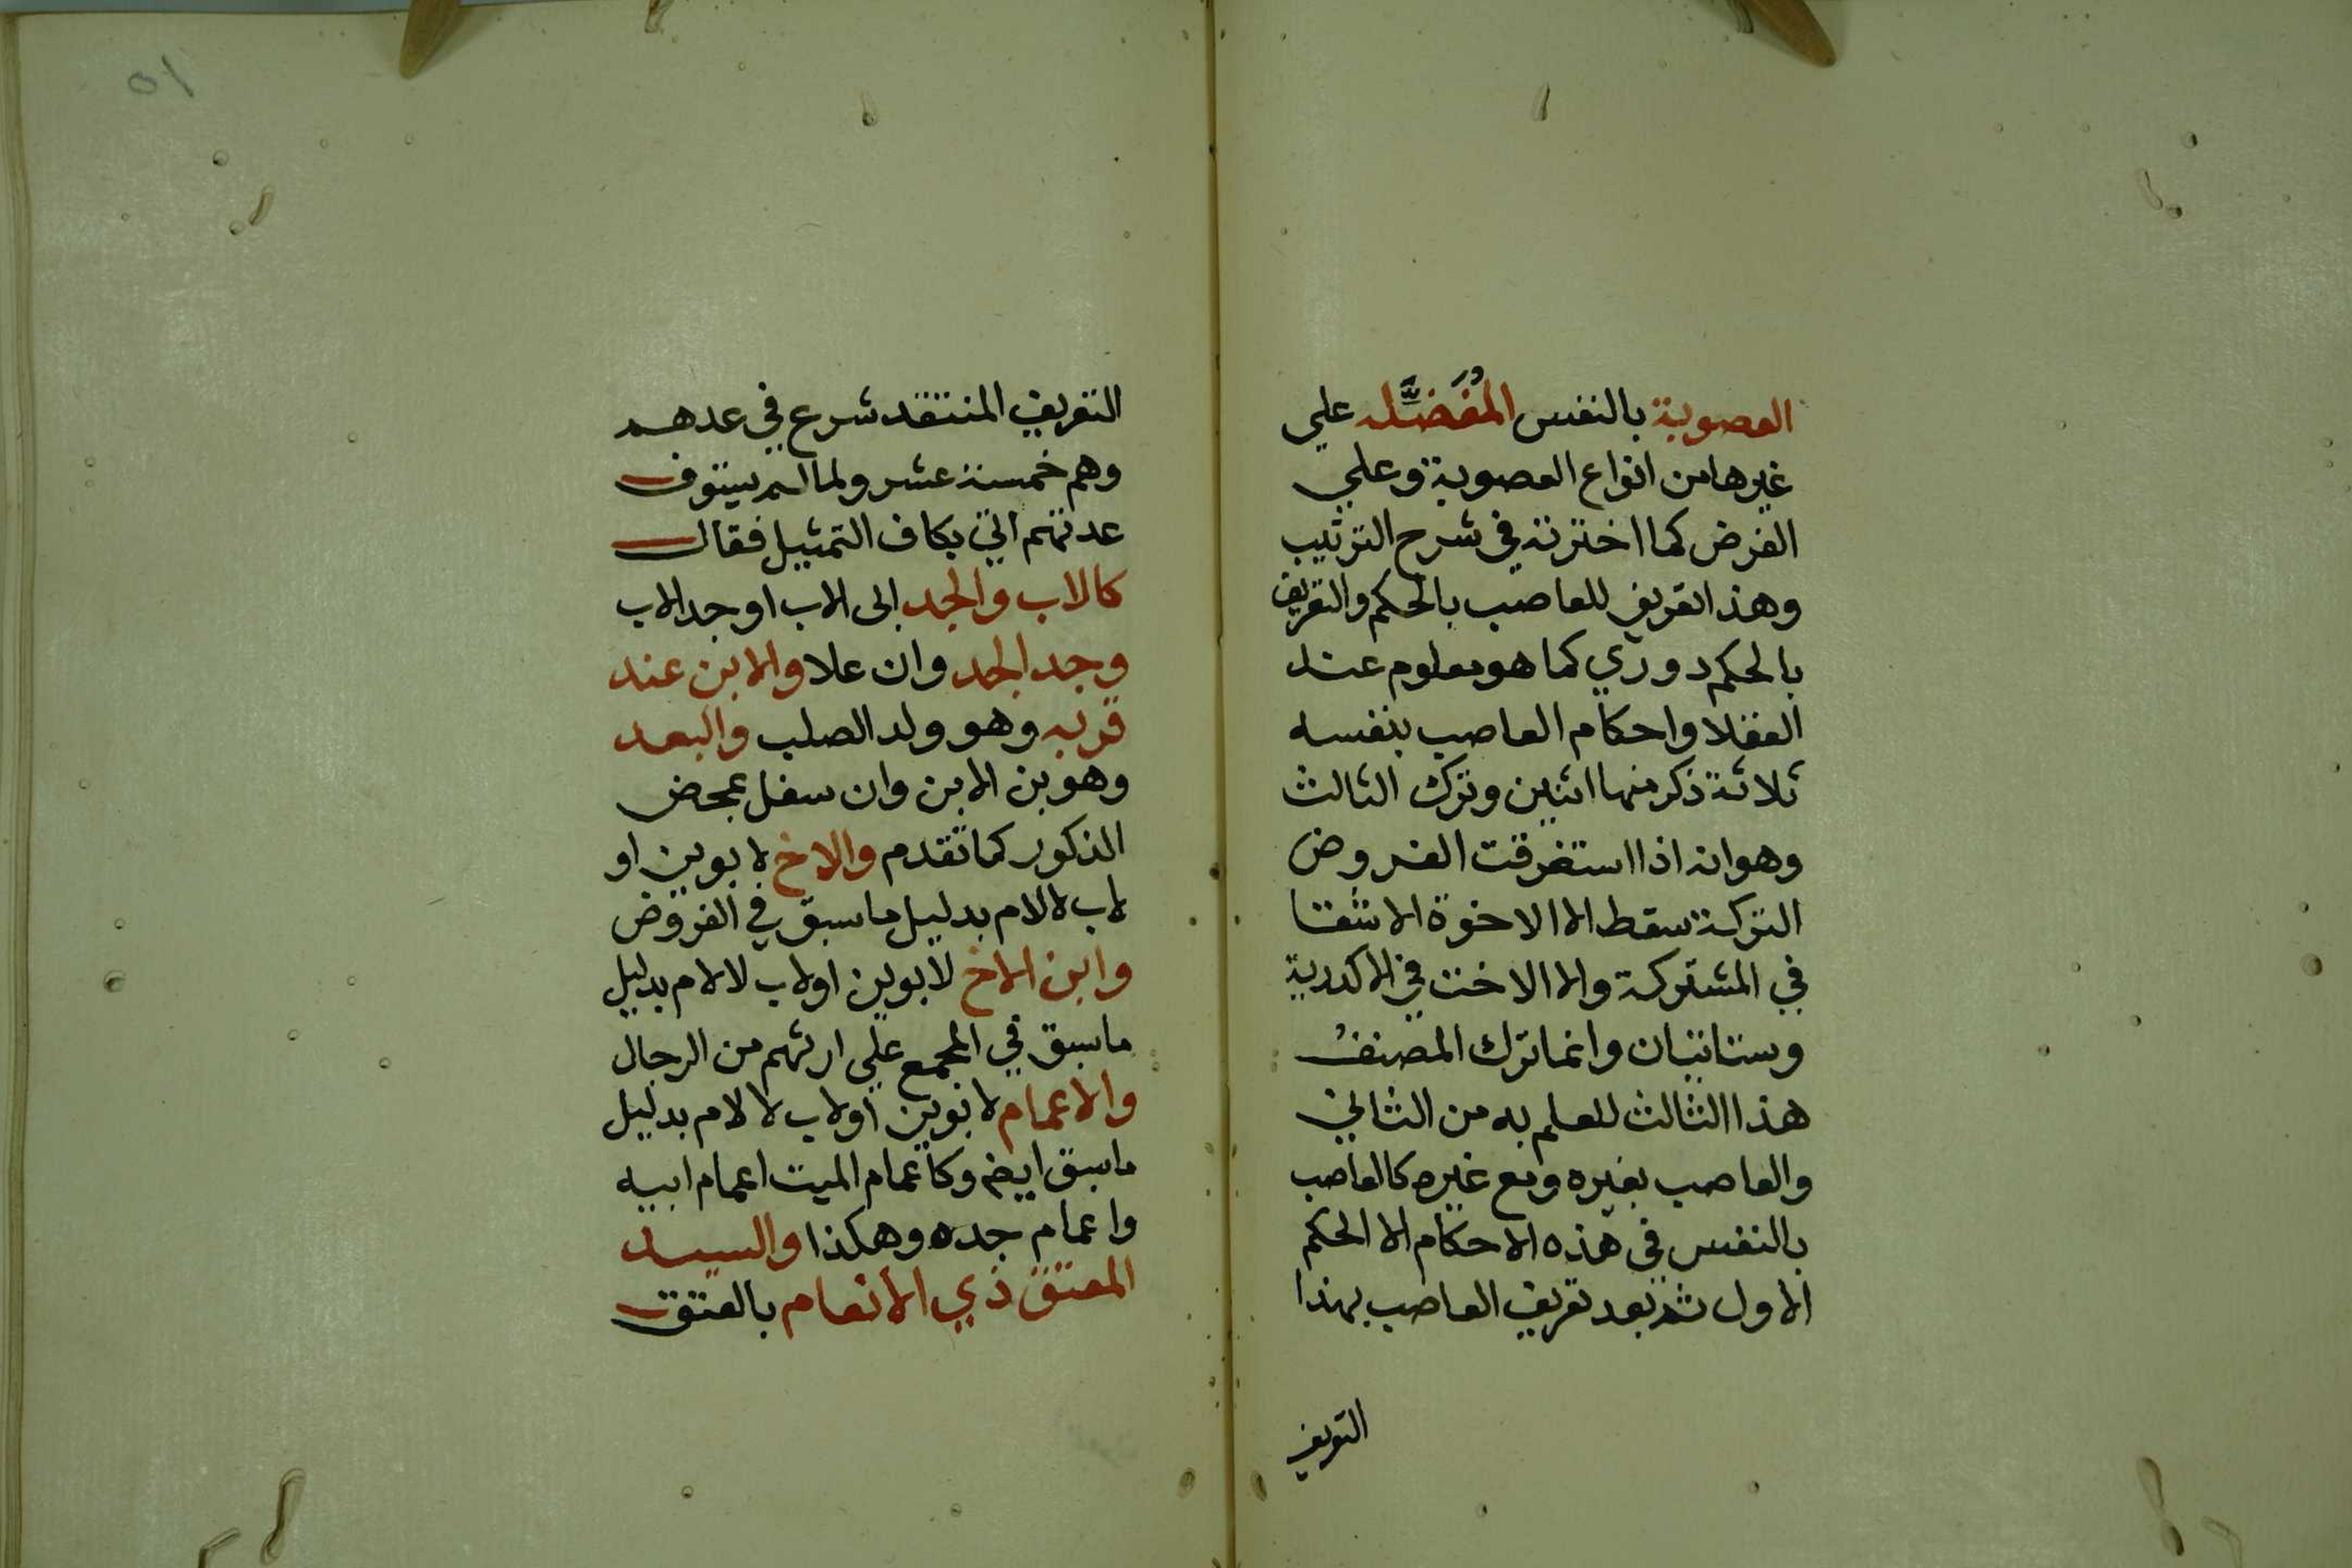 العصوبة بالنفس المُفَضَّله علي
غيرها من انواع العصوبة وعلي
الفرض كما اخترته في شرح الترتيب
وهذا تعريف للعاصب بالحكم والتعريف
بالحكم دوري كما هو معلوم عند
العقلا واحكام العاصب بنفسه
ثلاثة ذكر منها اثنين وترك الثالث
وهو انه اذا استغرقت الفروض
التركة سقط الا الاخوة الاشقا
في المشتركة والا الاخت في الاكدرية
وستاتيان وانما ترك المصنف
هذا الثالث للعلم به من الثاني
والعاصب بغيره ومع غيره كالعاصب
بالنفس في هذه الاحكام الا الحكم
الاول ثم بعد تعريف العاصب بهذا
التعريف
٥١
التعريف المنتقد شرع في عدهم
وهم خمسة عشر ولما لم يستوف
عدتهم اتي بكاف التمثيل فقال
كالاب والجد ابى الاب او جد الاب
وجد الجد وان علا والابن عند
قربه وهو ولد الصلب والبعد
وهو بن الابن وان سفل بمحض
الذكور كما تقدم والاخ لابوين او
لاب لا لام بدليل ما سبق في الفروض
وابن الاخ لابوين او لاب لا لام بدليل
ما سبق في المجمع علي ارثهم من الرجال
والاعمام لابوين او لاب لا لام بدليل
ما سبق ايضا وكاعمام الميت اعمام ابيه
واعمام جده وهكذا والسيد
المعتق ذي الأنعام بالعتق